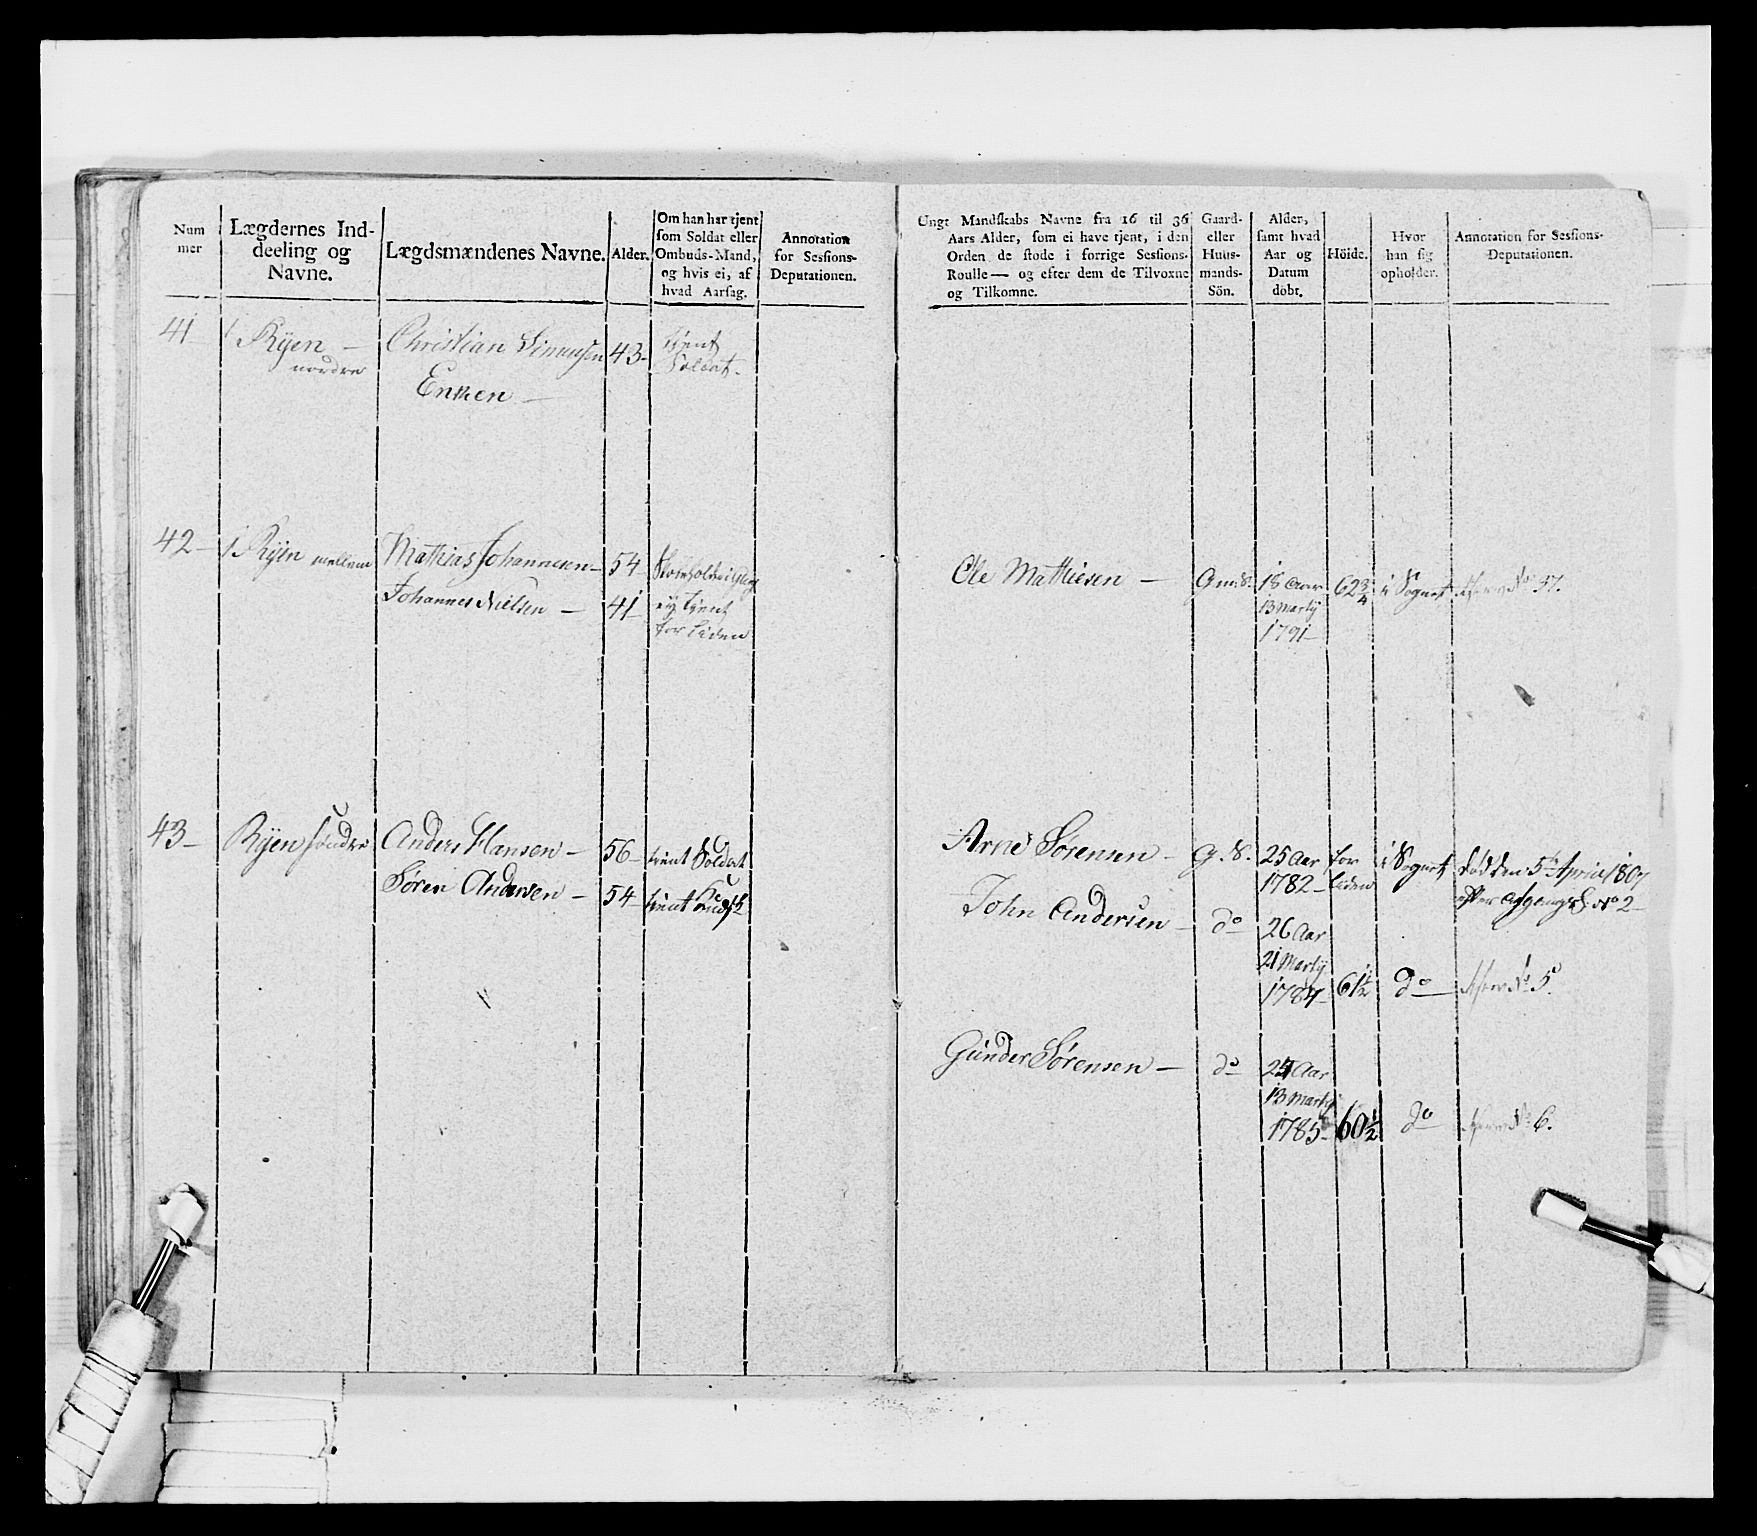 Num
mer
Lægdernes Ind-
deeling og
Navne.
Lægdsmændenes Navne.
Alder.
Om han har tjent
som Soldat eller
Ombuds-Mand,
og hvis ei, af
hvad Aarsag.
Annotation
for Sessions-
Deputationen.
Ungt Mandskabs Navne fra 16 til 36
Aars Alder, som ei have tjent, i den
Orden de stode i forrige Sessions-
Roulle — og efter dem de Tilvoxne
og Tilkomne.
Gaard-
eller
Huus-
mands-
Sön.
Alder,
samt hvad
Aar og
Datum
döbt.
Höide.
Hvor
han sig
opholder.
Annotation for Sessions-
Deputationen.
41 Ryen — Christian Simensen 43- tient
nordre Soldat.
Enken —
42 - Ryen mellem Mathias Johannesen - 54
Johannes Nielsen — 41 ey tient
for liden
Ole Mathiesen — Gmd S. 18 Aar 62 3/4 i Sognet No 37.
13 Marty
1791
43 - Ryen søndre Anders Hansen - 56 - tient Soldat
Søren Andersen - 54 tient
Arne Sørensen - G. S. 25 Aar for i Sognet død den 5te April 1807
1782 - liden No 2
John Andersen - do 26 Aar
21 Marty
1784 61 1/2 do No 5.
Gunder Sørensen — do Aar
13 Marty
1785 - 60 1/2 do No 6.